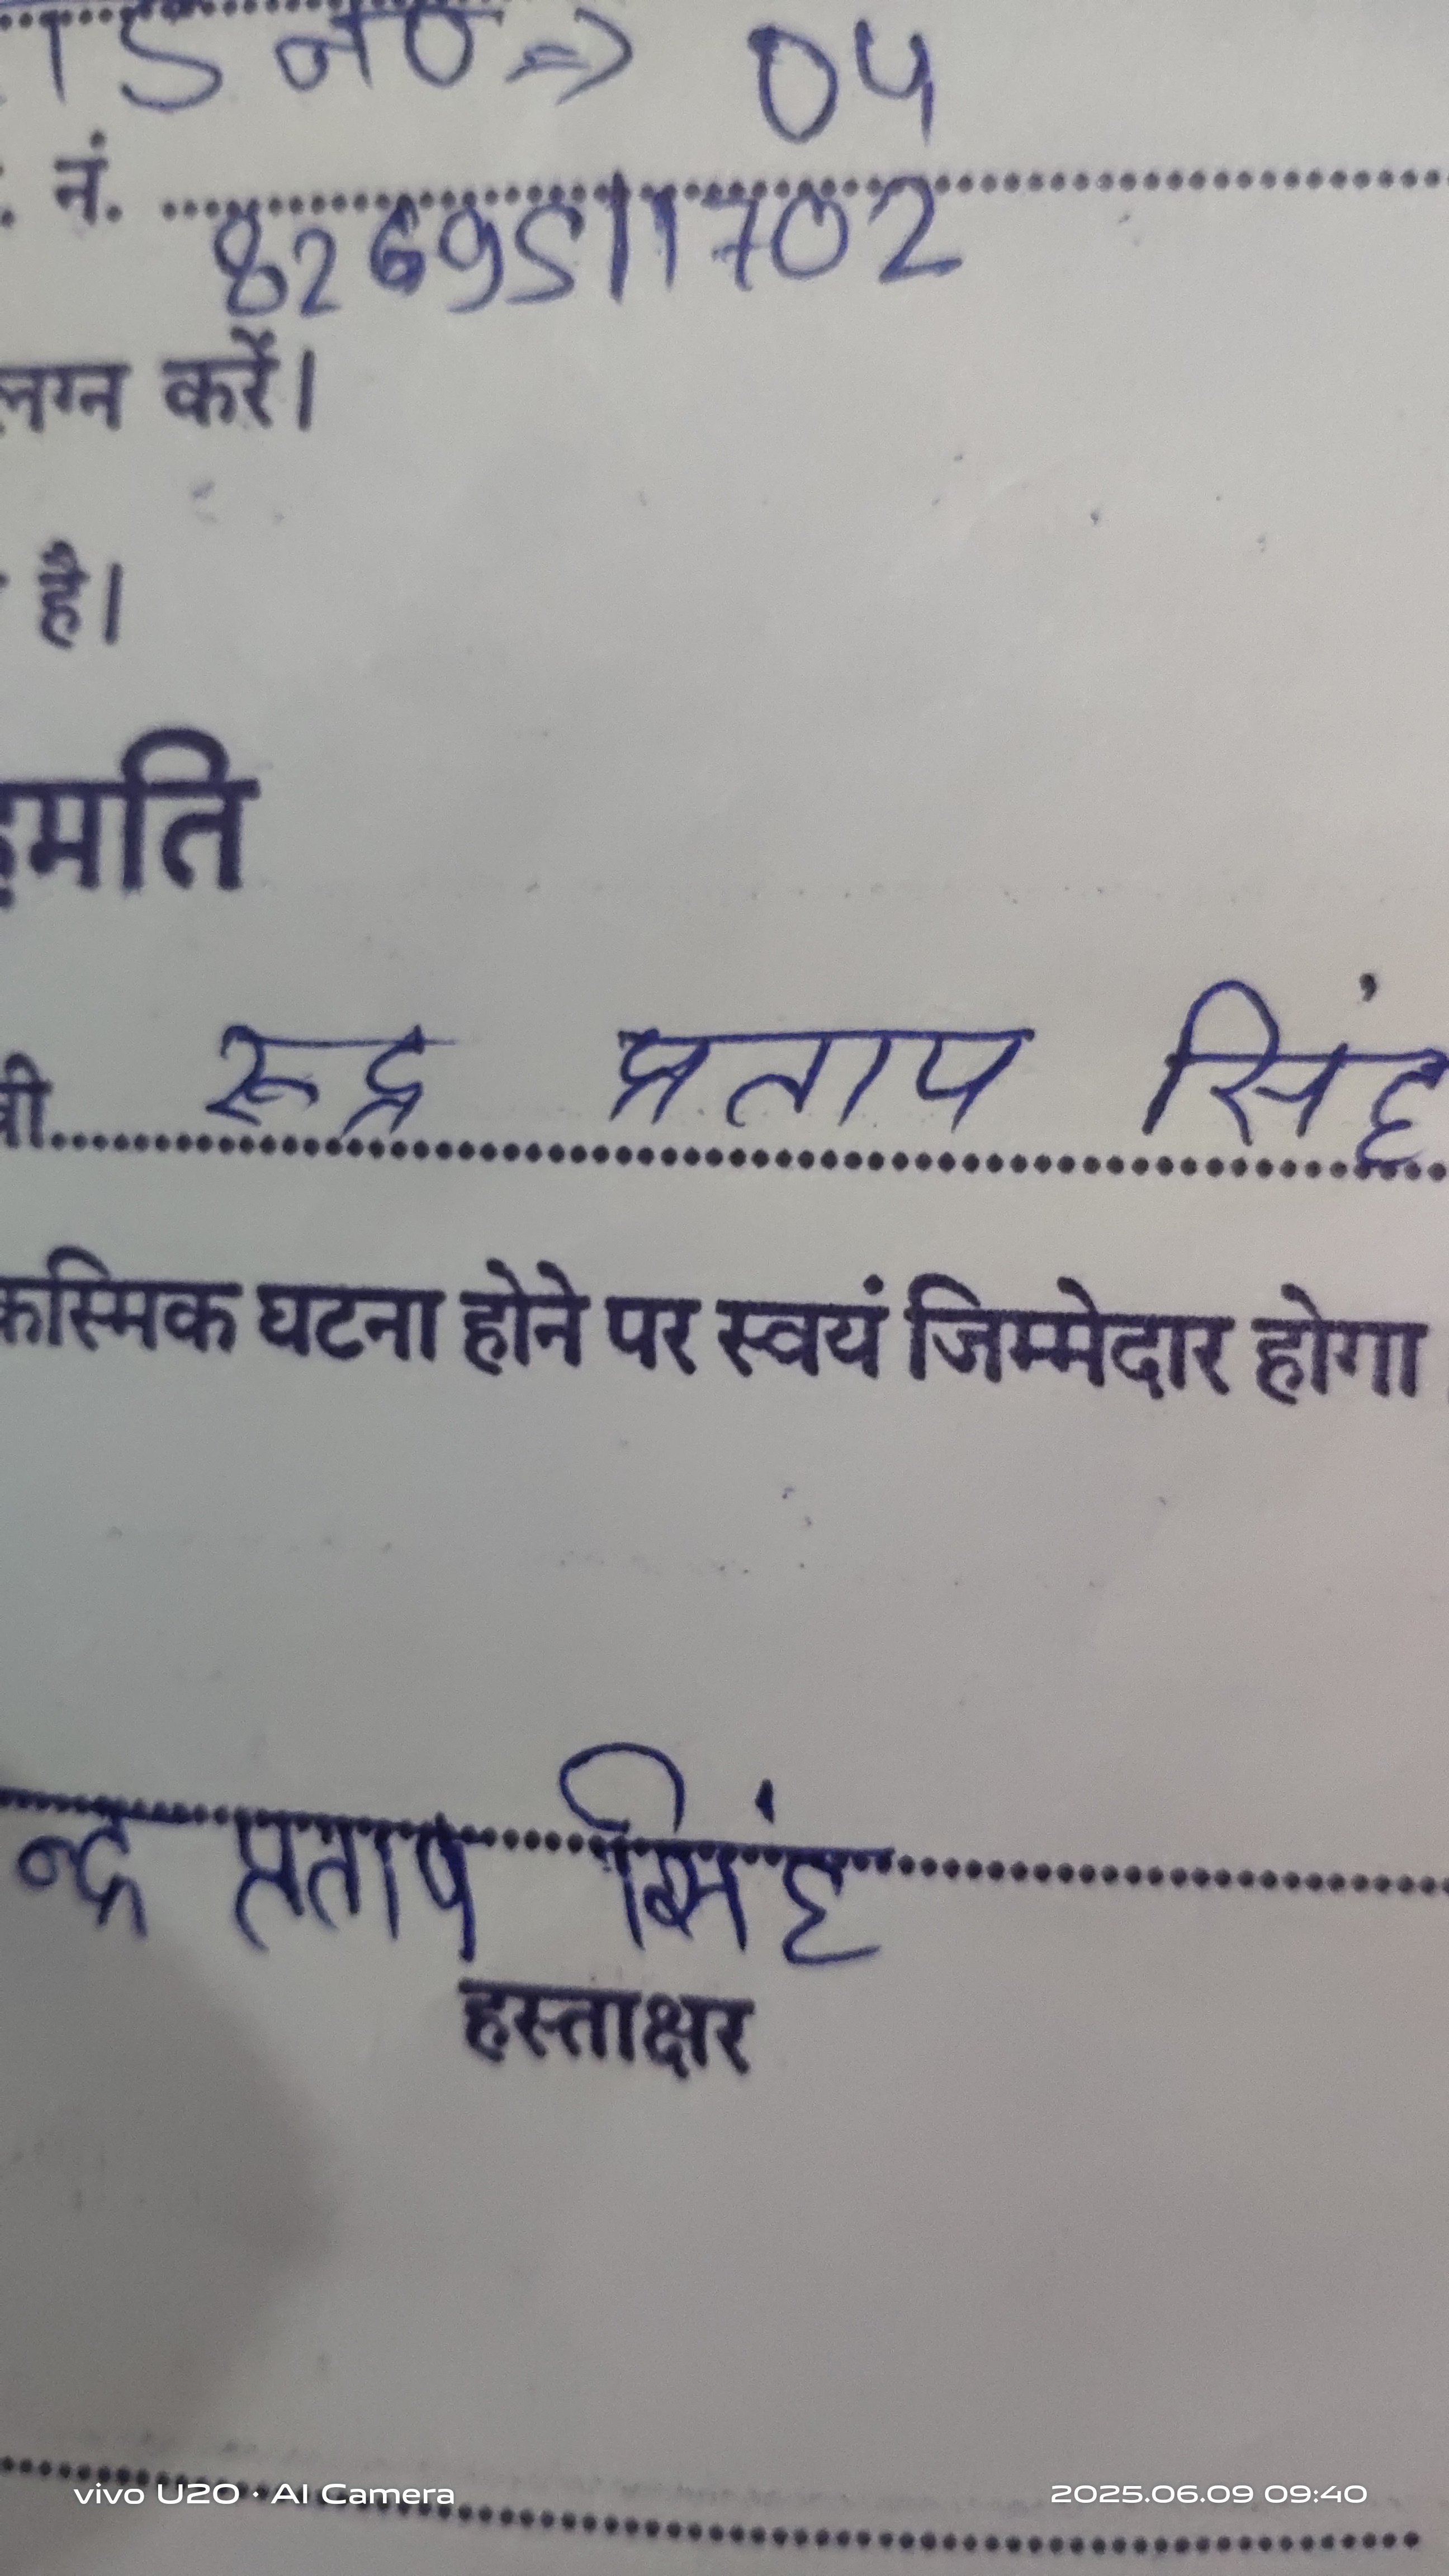 TS न0 => 04
. नं. 8269511702
लग्न करें।
है।
हमति
त्री रूद्र प्रताप सिंह
कस्मिक घटना होने पर स्वयं जिम्मेदार होगा
न्द्र प्रताप सिंह
हस्ताक्षर
vivo U20 · AI Camera 2025.06.09 09:40